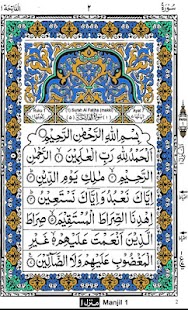 سُوْرَةٌ ٢ الفاتحة
Surah Al Fatiha (makki)
بِسْمِ اللهِ الرَّحْمٰنِ الرَّحِيْمِ
اَلْحَمْدُ لِلّٰهِ رَبِّ الْعٰلَمِيْنَ ۝ الرَّحْمٰنِ
الرَّحِيْمِ ۝ مٰلِكِ يَوْمِ الدِّيْنِ ۝
اِيَّاكَ نَعْبُدُ وَاِيَّاكَ نَسْتَعِيْنُ ۝
اِهْدِنَا الصِّرَاطَ الْمُسْتَقِيْمَ ۝ صِرَاطَ
الَّذِيْنَ اَنْعَمْتَ عَلَيْهِمْ ۝ غَيْرِ
الْمَغْضُوْبِ عَلَيْهِمْ وَلَا الضَّآلِّيْنَ ۝
منزل ١ Manjil 1 2